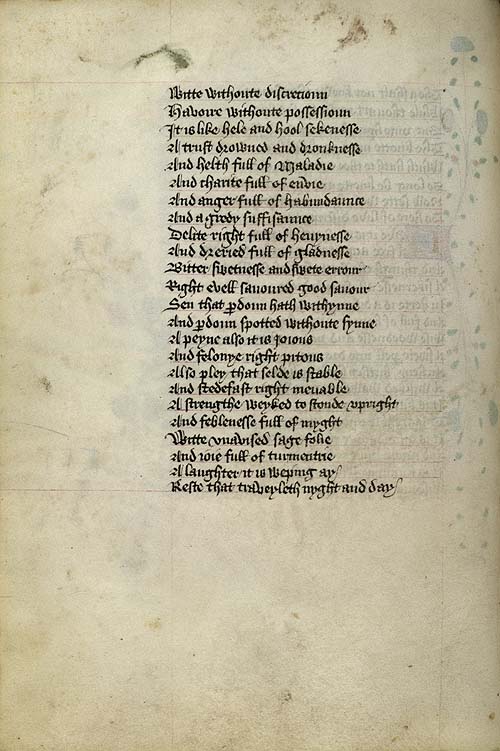 Witte withoute discrecioun
Havoire withoute possessioun
It is like hele and hool sekenesse
A trust drowned and dronknesse
And helth full of Maladie
And charite full of envie
And anger full of habundaunce
And a gredy suffisaunce
Delite right full of hevynesse
And dreried full of gladnesse
Bitter swetnesse and swete errour
Right evell savoured good savour
Sen that pdoun hath withynne
And pdoun spotted withoute synne
A peyne also it is joious
And felonye right pitous
Also pley that selde is stable
And stedefast right mevable
A strengthe weyked to stonde vpright
And feblenesse full of myght
Witte vnavised sage folie
And joie full of turmentrie
A laughter it is weping ay
Reste that traveyleth nyght and day